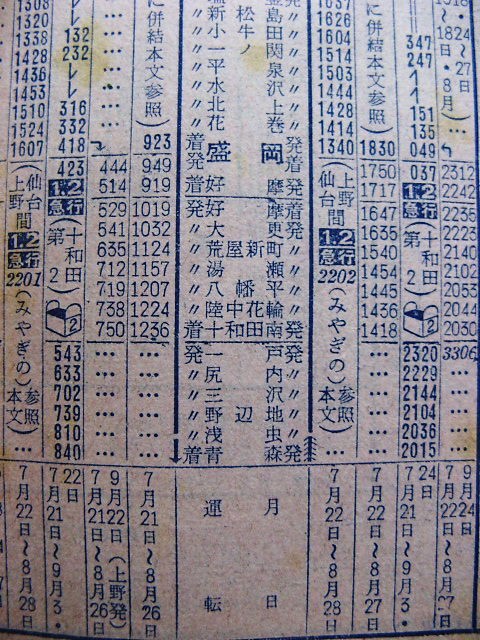 1320
1338
1428
1436
1453
1510
1524
1607
仙台
上野間
1・2
急行
2201
(みやぎの)
本文参照
7月22日〜8月28日
132
232
316
332
418
423
1・2
急行
第2十和田
543
633
702
739
810
840
7月21日〜9月3・
444
514
529
541
635
712
719
738
750
7月21日〜8月26日(上野発)
に併結本文参照)
923
949
919
1019
1032
1124
1157
1207
1224
1236
7月21日〜8月26日
新松島
小牛田
一ノ関
平泉
水沢
北上
花巻
着盛岡発
発〃着
好摩
発好摩着
大更
荒屋新町
湯瀬
八幡平
陸中花輪
着十和田南発
発一戸
尻内
三沢
野辺地
浅虫
着青森発
運転月日
1626
1604
1514
1503
1444
1428
1414
1340
上野
仙台間
1・2
急行
2202
(みやぎの)
本文参照
7月22日〜8月28日
に併結本文参照)
1830
1750
1717
1647
1635
1540
1454
1445
1436
1418
7月22日〜8月27日
347
247
151
135
049
037
1・2
急行
第2十和田
2320
2229
2144
2104
2036
2015
2312
2242
2235
2223
2140
2102
2053
2044
2030
3306